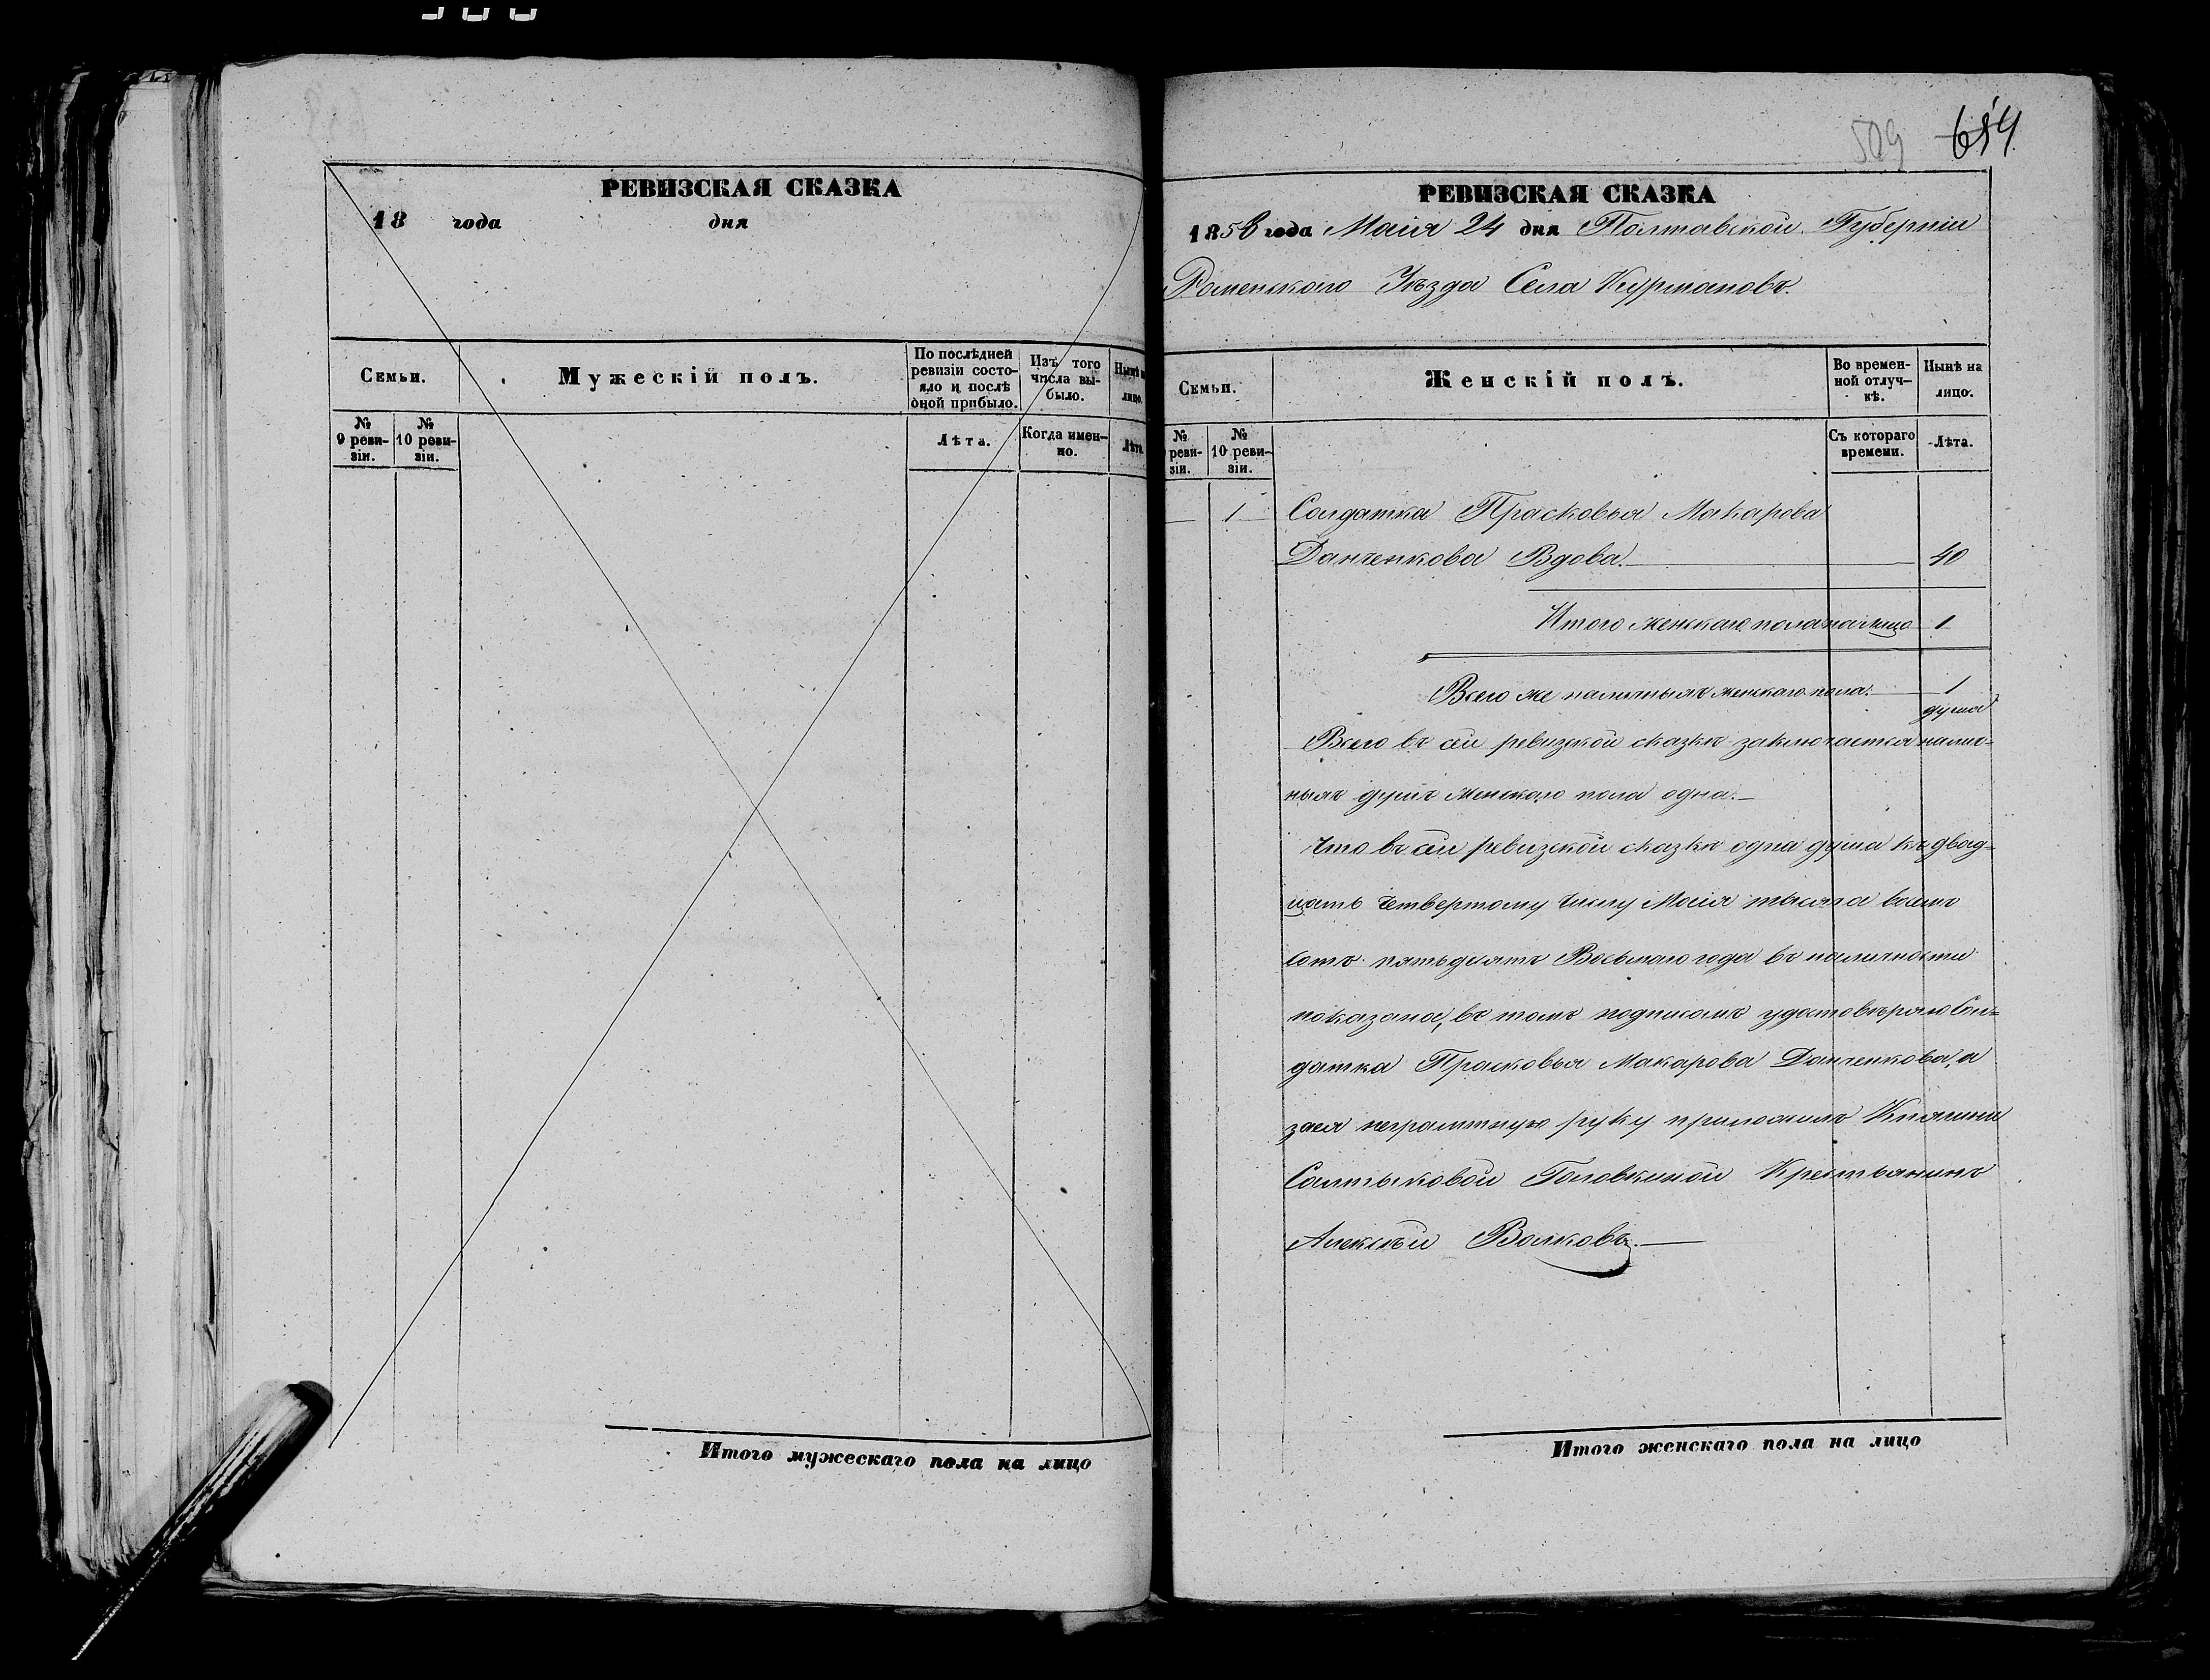 РЕВИЗСКАЯ СКАЗКА
18 года дня
Семьи.
Мужескій полъ.
По послѣдней ревизіи состо-
яло и послѣ оной прибыло.
Изъ того числа вы-
было.
Нынѣ на лицо.
№ 9 реви-
зіи.
№ 10 реви-
зіи.
Лѣта.
Когда имен-
но.
Лѣта
Итого мужескаго пола на лицо
509 654
РЕВИЗСКАЯ СКАЗКА
1858 года Маія 24 дня Полтавской Губерніи
Роменскаго Уѣзда Села Курмановъ.
Семьи.
Женскій полъ.
Во времен-
ной отлуч-
кѣ.
Нынѣ на
лицо.
№
реви-
зіи.
№
10 реви-
зіи.
Съ котораго
времени.
Лѣта.
1 Солдатка Прасковья Макарова
Данченкова Вдова. 40
Итого женскаго пола на лицо 1
Всего же наличныхъ женскаго пола. 1
душа
Всего въ сей ревизкой сказкѣ заключается налич-
ныхъ душъ женскаго пола одна.
Что въ сей ревизкой сказкѣ одна душа къ двад-
цать четвертому числу Маія тысяча восемъ
сотъ пятьдесятъ Восьмаго года въ наличности
показана, въ томъ подписомъ удостовѣряю Сол-
датка Прасковья Макарова Данченкова, а
за ея неграмтную руку приложилъ Княгини
Салтыковой Головкиной Крестьянинъ
Алексѣй Волковъ.
Итого женскаго пола на лицо